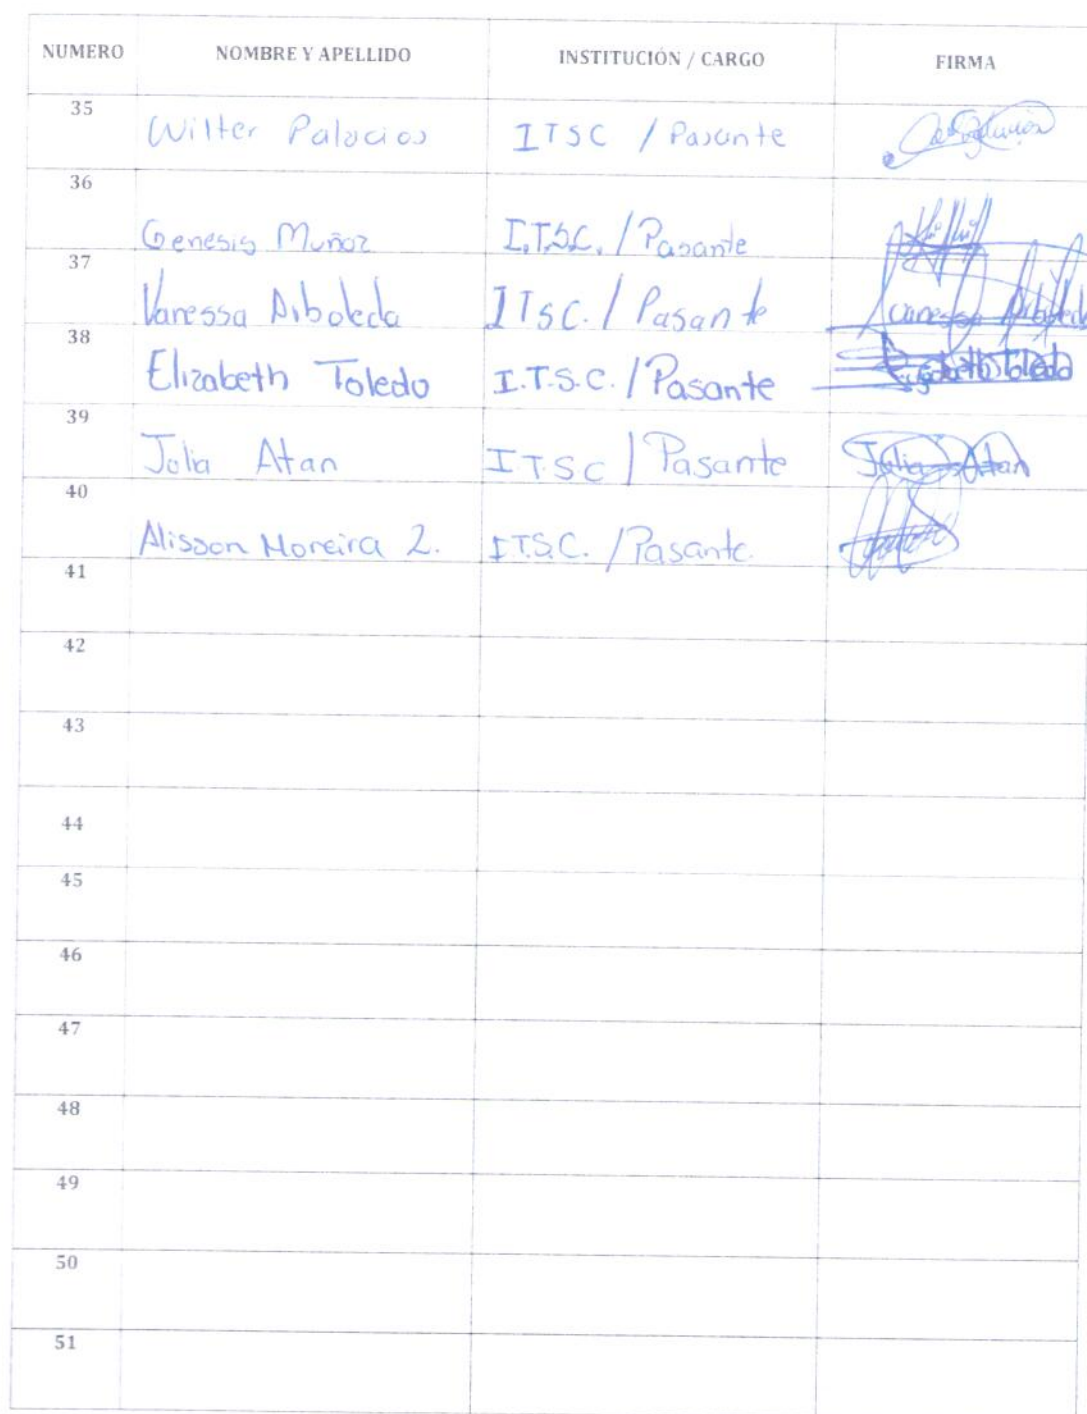 NUMERO NOMBRE Y APELLIDO INSTITUCIÓN / CARGO FIRMA
35 Wilter Palacios ITSC / Pasante
36 Genesis Muñoz I.T.S.C. / Pasante
37 Vanessa Arboleda ITSC. / Pasante Vanessa Arboleda
38 Elizabeth Toledo I.T.S.C. / Pasante Elizabeth Toledo
39 Julia Atan I.T.S.C / Pasante Julia Atan
40 Alisson Moreira Z. I.T.S.C. / Pasante
41
42
43
44
45
46
47
48
49
50
51